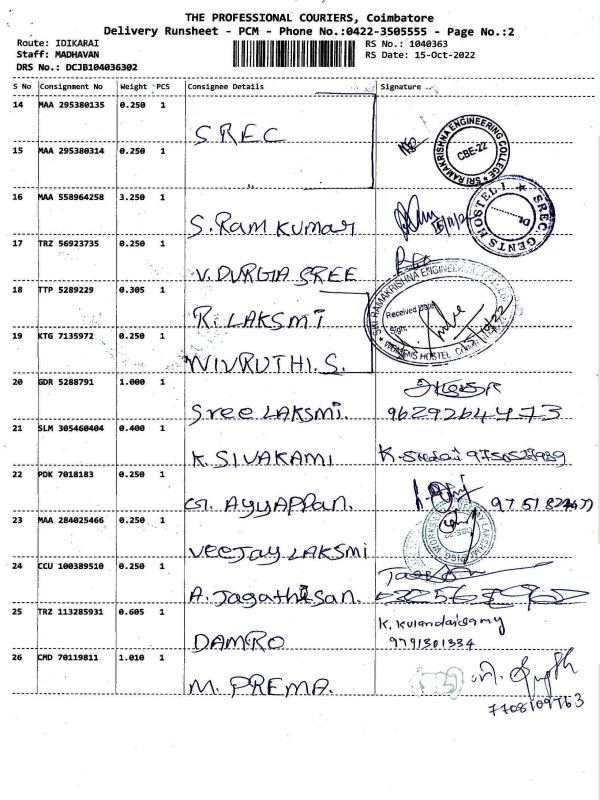 THE PROFESSIONAL COURIERS, Coimbatore
Delivery Runsheet - PCM - Phone No.:0422-3505555 - Page No.:2
Route: IDIKARAI
RS No.: 1040363
Staff: MADHAVAN
RS Date: 15-Oct-2022
DRS No.: DCJB104036302
S No Consignment No Weight PCS Consignee Details Signature
14 MAA 295380135 0.250 1
SREC
15 MAA 295380314 0.250 1
SRI RAMAKRISHNA ENGINEERING COLLEGE
CBE-22
16 MAA 558964258 3.250 1
S.Ram Kumar
SREC. GENTS HOSTEL I
17 TRZ 56923735 0.250 1
V. DURGA SREE
18 TTP 5289229 0.305 1
R. LAKSMI
SRI RAMAKRISHNA ENGINEERING COLLEGE
Received Date
Sign:
WOMENS HOSTEL
19 KTG 7135972 0.250 1
NIVRUTHI.S.
20 GDR 5288791 1.000 1
Sree LAKSMI. 9629264473
21 SLM 305460404 0.400 1
K. SIVAKAMI
22 PDK 7018183 0.250 1
G. Ayyappan.
23 MAA 284025466 0.250 1
VEEJAY LAKSMI
24 CCU 100389510 0.250 1
A. Jagathisan.
25 TRZ 113285931 0.605 1
DAMRO
K. Kulandaisamy
9791301334
26 CMD 70119811 1.010 1
M. PREMA.
7708109763